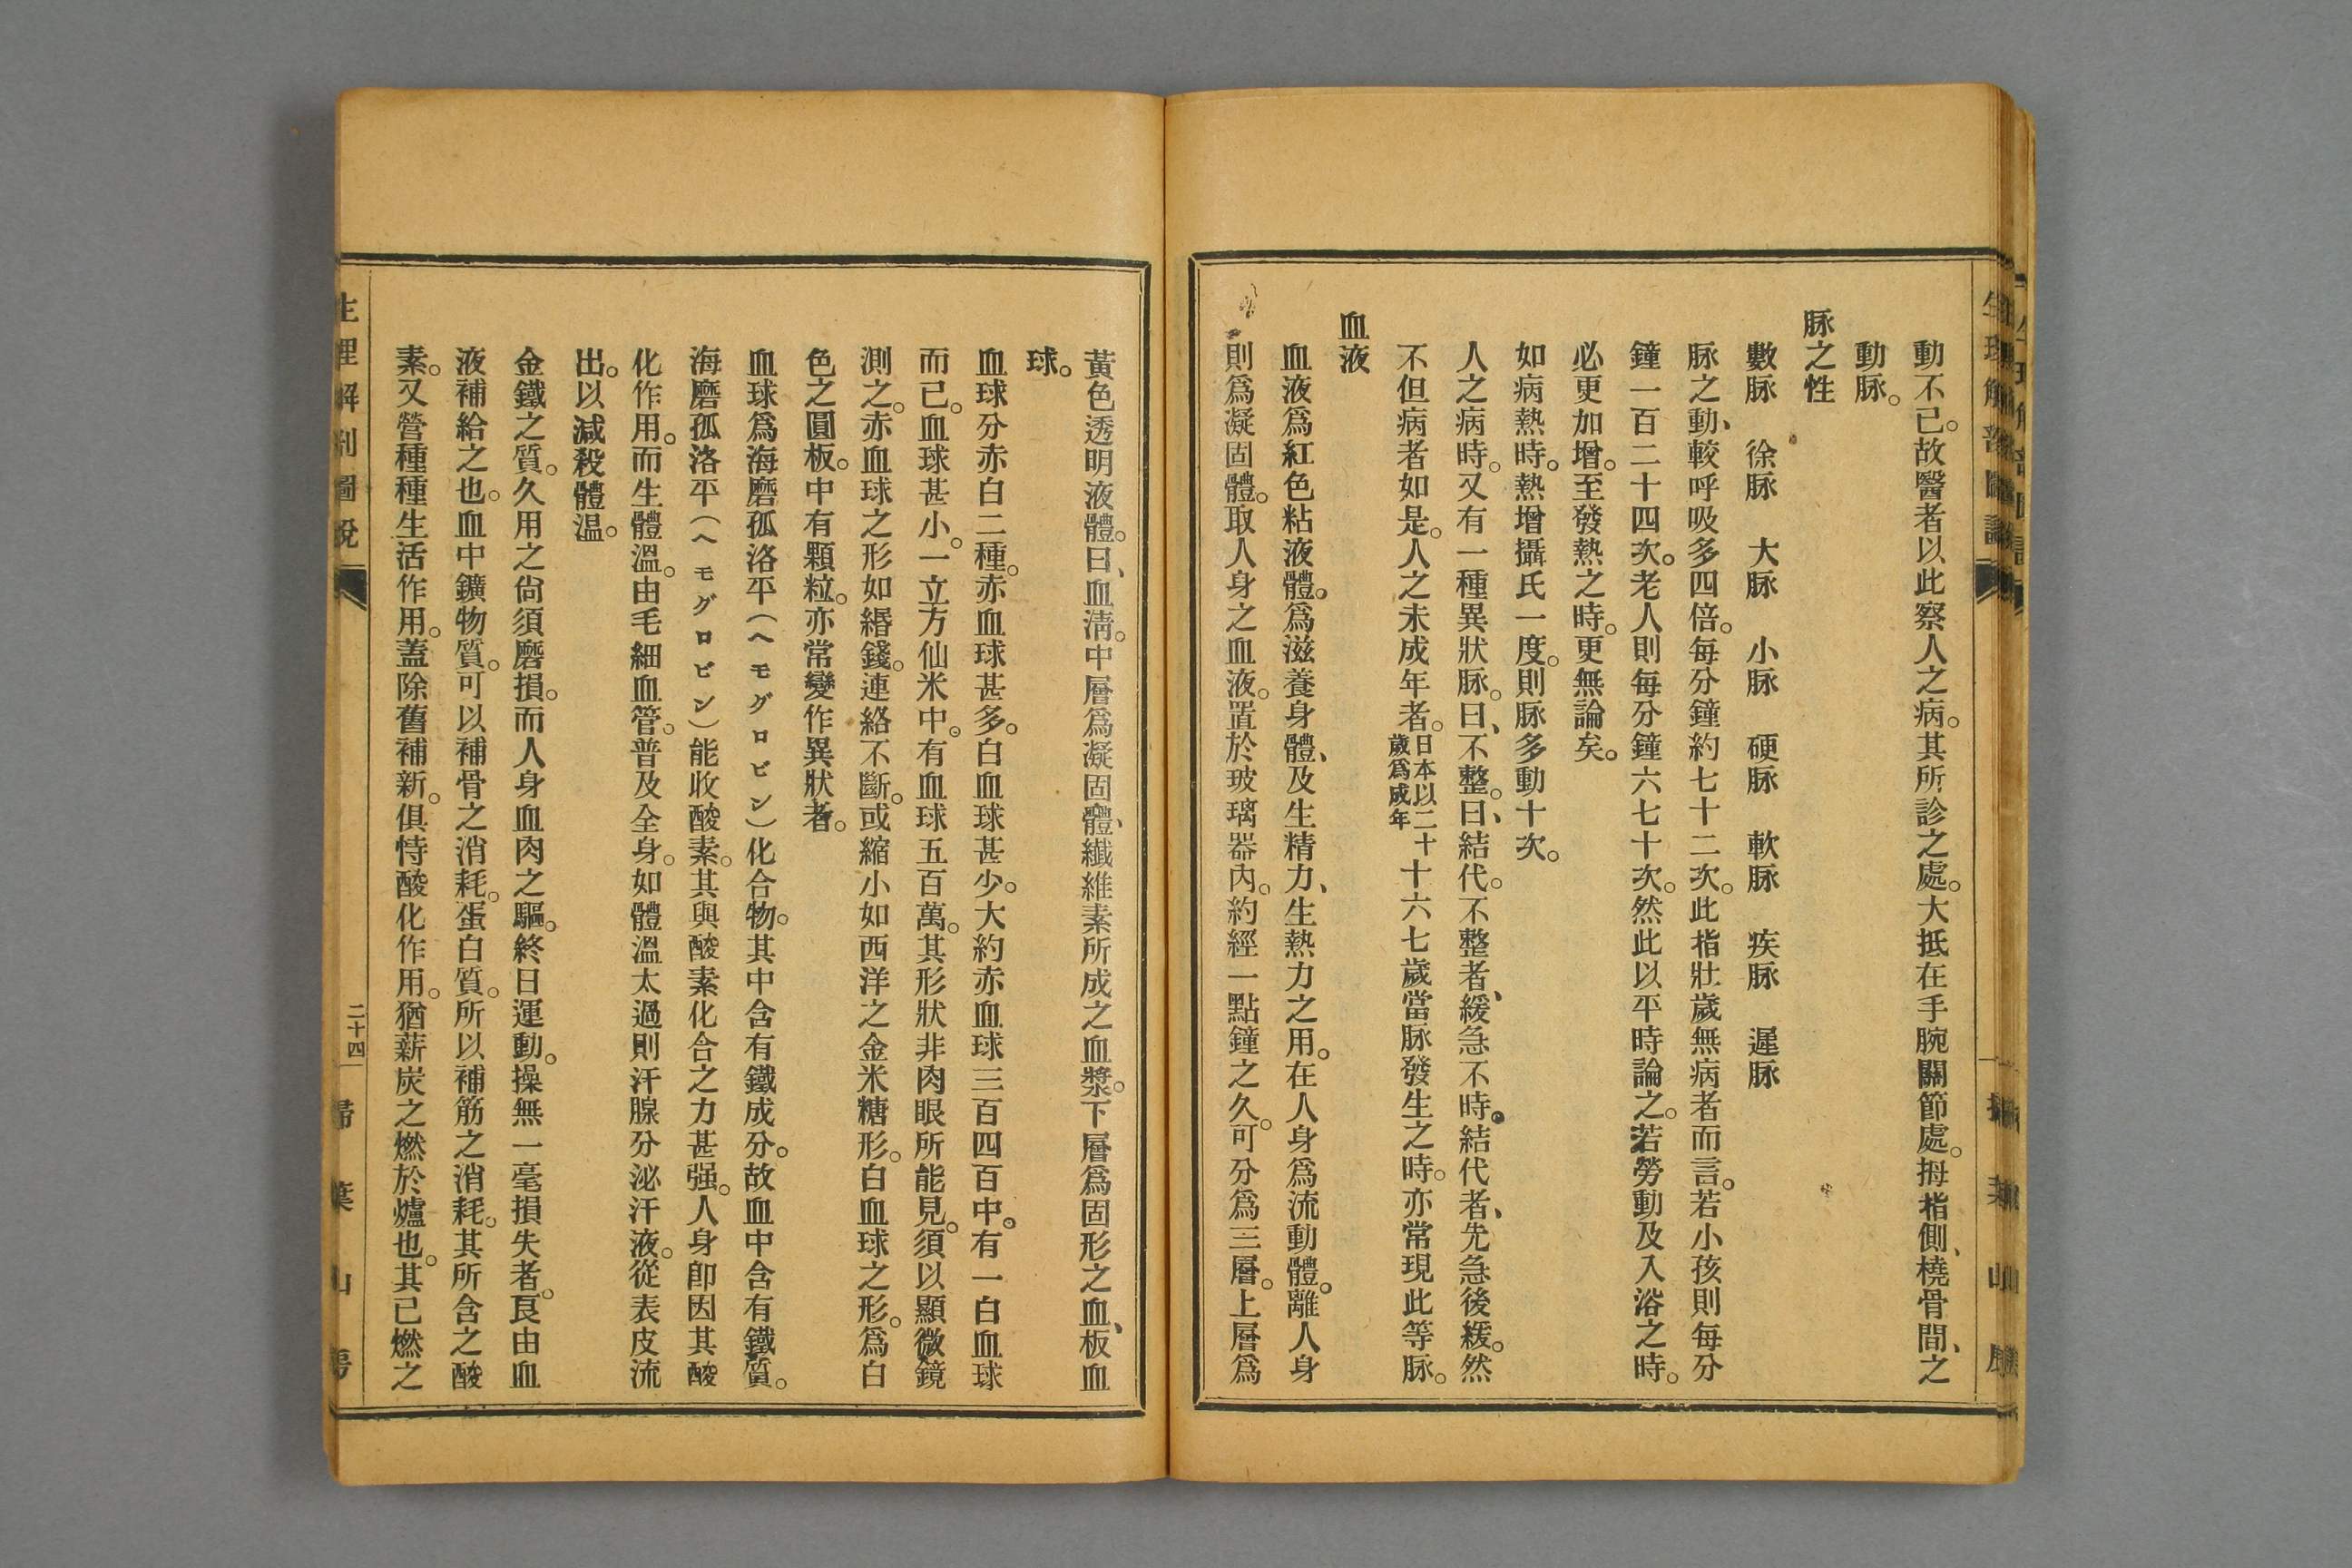 動不已。故醫者以此察人之病。其所診之處。大抵在手腕關節處。拇指側、橈骨間、之
動脉。
脉之性
數脉　徐脉　大脉　小脉　硬脉　軟脉　疾脉　遲脉
脉之動、較呼吸多四倍。每分鐘約七十二次。此指壯歲無病者而言。若小孩則每分
鐘一百二十四次。老人則每分鐘六七十次。然此以平時論之。若勞動及入浴之時。
必更加增。至發熱之時。更無論矣。
如病熱時。熱增攝氏一度。則脉多動十次。
人之病時。又有一種異狀脉。曰、不整。曰、結代。不整者、緩急不時。結代者、先急後緩。然
不但病者如是。人之未成年者。日本以二十歲爲成年十六七歲當脉發生之時。亦常現此等脉。
血液
血液爲紅色粘液體。爲滋養身體、及生精力、生熱力之用。在人身爲流動體。離人身
則爲凝固體。取人身之血液。置於玻璃器內。約經一點鐘之久。可分爲三層。上層爲
黃色透明液體。曰、血淸。中層爲凝固體、纖維素所成之血漿。下層爲固形之血、板血
球。
血球分赤白二種。赤血球甚多。白血球甚少。大約赤血球三百四百中。有一白血球
而已。血球甚小。一立方仙米中。有血球五百萬。其形狀非肉眼所能見。須以顯微鏡
測之。赤血球之形如緡錢。連絡不斷。或縮小如西洋之金米糖形。白血球之形。爲白
色之圓板。中有顆粒。亦常變作異狀者。
血球爲海磨孤洛平（ヘモグロビン）化合物。其中含有鐵成分。故血中含有鐵質。
海磨孤洛平（ヘモグロビン）能收酸素。其與酸素化合之力甚强。人身卽因其酸
化作用。而生體溫。由毛細血管。普及全身。如體溫太過則汗腺分泌汗液。從表皮流
出。以減殺體溫。
金鐵之質。久用之尙須磨損。而人身血肉之驅。終日運動。操無一毫損失者。良由血
液補給之也。血中鑛物質。可以補骨之消耗。蛋白質。所以補筋之消耗。其所含之酸
素。又營種種生活作用。蓋除舊補新。俱恃酸化作用。猶薪炭之燃於爐也。其已燃之
生理解剖圖說
二十四
掃葉山房